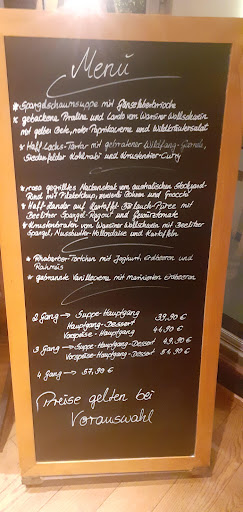 Menü
* Spargelschaumsuppe mit Gänseleberbrioche
* gebackene Praline und Lamm vom Warsiner Wollschwein
mit gelber Bete, roter Paprikacreme und Wildkräutersalat
* Haff-Lachs-Tartar mit gebratener Wildfang-Garnele,
Kohlrabi und Curry
* rosa gegrilltes Nackensteak vom australischen Stockyard-
Rind mit Pfefferchup, Bohnen und Gnocchi
* Haff-Zander auf Kartoffel-Bärlauch-Püree mit
Beelitzer Spargel-Ragout und Gewürztomate
* Krustenbraten vom Warsiner Wollschwein mit Beelitzer
Spargel, Nussbutter-Hollandaise und Kartoffeln
* Rhabarber-Törtchen mit Joghurt, Erdbeeren und
Rahmeis
* gebrannte Vanillecreme mit marinierten Erdbeeren
2 Gang → Suppe-Hauptgang 39,90 €
Hauptgang-Dessert
Vorspeise-Hauptgang 44,90 €
3 Gang → Suppe-Hauptgang-Dessert 49,90 €
Vorspeise-Hauptgang-Dessert 54,90 €
4 Gang → 57,90 €
Preise gelten bei
Vorauswahl